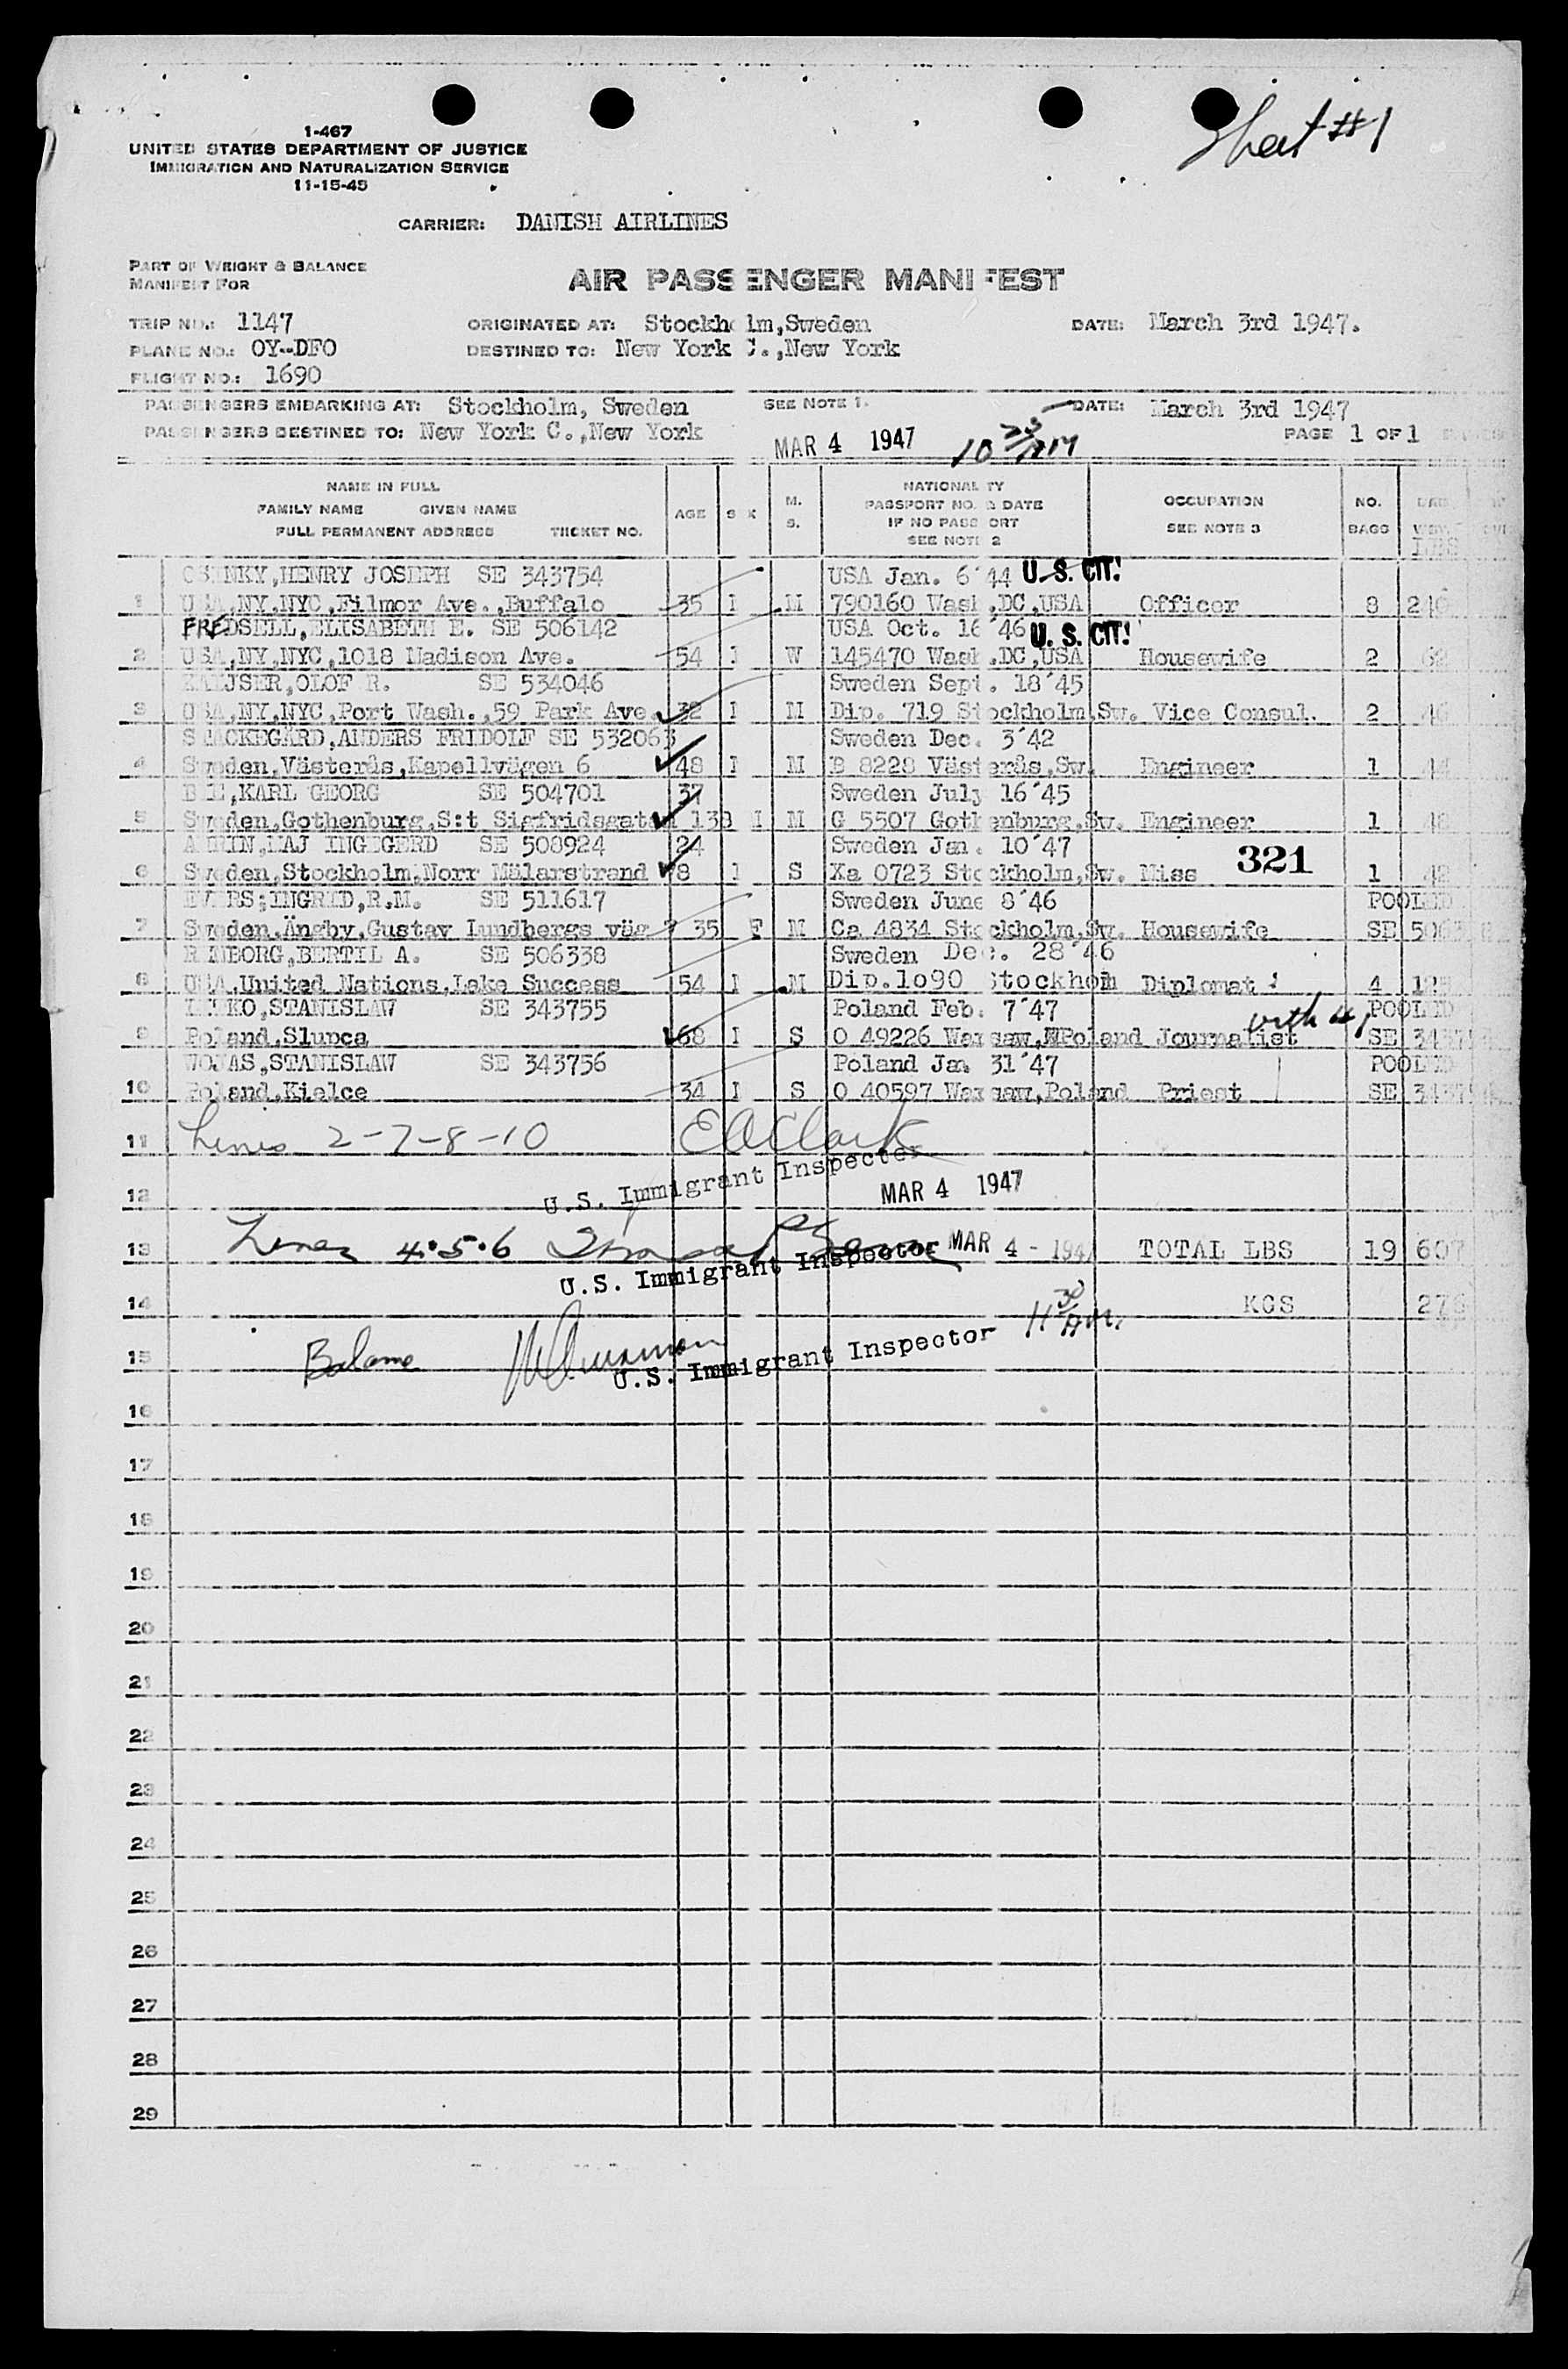 Sheet #1
1-467
UNITED STATES DEPARTMENT OF JUSTICE
IMMIGRATION AND NATURALIZATION SERVICE
11-15-45
CARRIER: DANISH AIRLINES
PART OF WEIGHT & BALANCE
MANIFEST FOR
AIR PASSENGER MANIFEST
TRIP NO.: 1147 ORIGINATED AT: Stockholm,Sweden DATE: March 3rd 1947.
PLANE NO.: OY-DFO DESTINED TO: New York C.,New York
FLIGHT NO.: 1690
PASSENGERS EMBARKING AT: Stockholm, Sweden SEE NOTE 1. DATE: March 3rd 1947
PASSENGERS DESTINED TO: New York C.,New York MAR 4 1947 10 25 AM PAGE 1 OF 1
NAME IN FULL
FAMILY NAME GIVEN NAME
FULL PERMANENT ADDRESS TICKET NO.
AGE SEX M. S.
NATIONALITY
PASSPORT NO. & DATE
IF NO PASSPORT
SEE NOTE 2
OCCUPATION
SEE NOTE 3
NO.
BAGS
LBS
HENRY JOSEPH SE 343754 USA Jan. 6'44 U.S. CIT.
1 USA,NY,NYC,Filmor Ave.,Buffalo 35 M 790160 Wash.,DC,USA Officer 8 240
FREDSELL,ELISABETH E. SE 506142 USA Oct. 16'46 U.S. CIT.
2 USA,NY,NYC,1018 Madison Ave. 54 W 145470 Wash.DC,USA Housewife 2 62
OLOF R. SE 534046 Sweden Sept. 18'45
3 USA,NY,NYC,Port Wash.,59 Park Ave. 32 M Dip. 719 Stockholm,Sw. Vice Consul. 2 46
ANDERS FRIDOLF SE 532063 Sweden Dec. 3'42
4 Sweden,Västerås,Kapellvägen 6 48 M B 8228 Västerås,Sw. Engineer 1 44
KARL GEORG SE 504701 37 Sweden July 16'45
5 Sweden,Gothenburg,S:t Sigfridsgatan 138 M G 5507 Gothenburg,Sw. Engineer 1 48
MAJ INGEGERD SE 508924 24 Sweden Jan. 10'47
6 Sweden,Stockholm,Norr Mälarstrand 8 S Xa 0723 Stockholm,Sw. Miss 321 1 42
EVERS;INGRID,R.M. SE 511617 Sweden June 8'46 POOLED
7 Sweden,Ängby,Gustav Lundbergs väg 35 F M Ca 4834 Stockholm,Sw. Housewife SE
BERTIL A. SE 506338 Sweden Dec. 28'46
8 USA,United Nations,Lake Success 54 M Dip.1o90 Stockholm Diplomat 4 125
STANISLAW SE 343755 Poland Feb. 7'47 POOLED
9 Poland,Slupca 68 S O 49226 Warsaw,Poland Journalist with #1 SE
WOJAS,STANISLAW SE 343756 Poland Jan. 31'47 POOLED
10 Poland,Kielce 34 S O 40597 Warsaw,Poland Priest SE
11 Lines 2-7-8-10 E A Clark
U.S. Immigrant Inspector
12 MAR 4 1947
13 Lines 4.5.6 MAR 4 - 1947 TOTAL LBS 19 607
U.S. Immigrant Inspector
14 11 30 AM. KGS
15 Balance
U.S. Immigrant Inspector
16
17
18
19
20
21
22
23
24
25
26
27
28
29